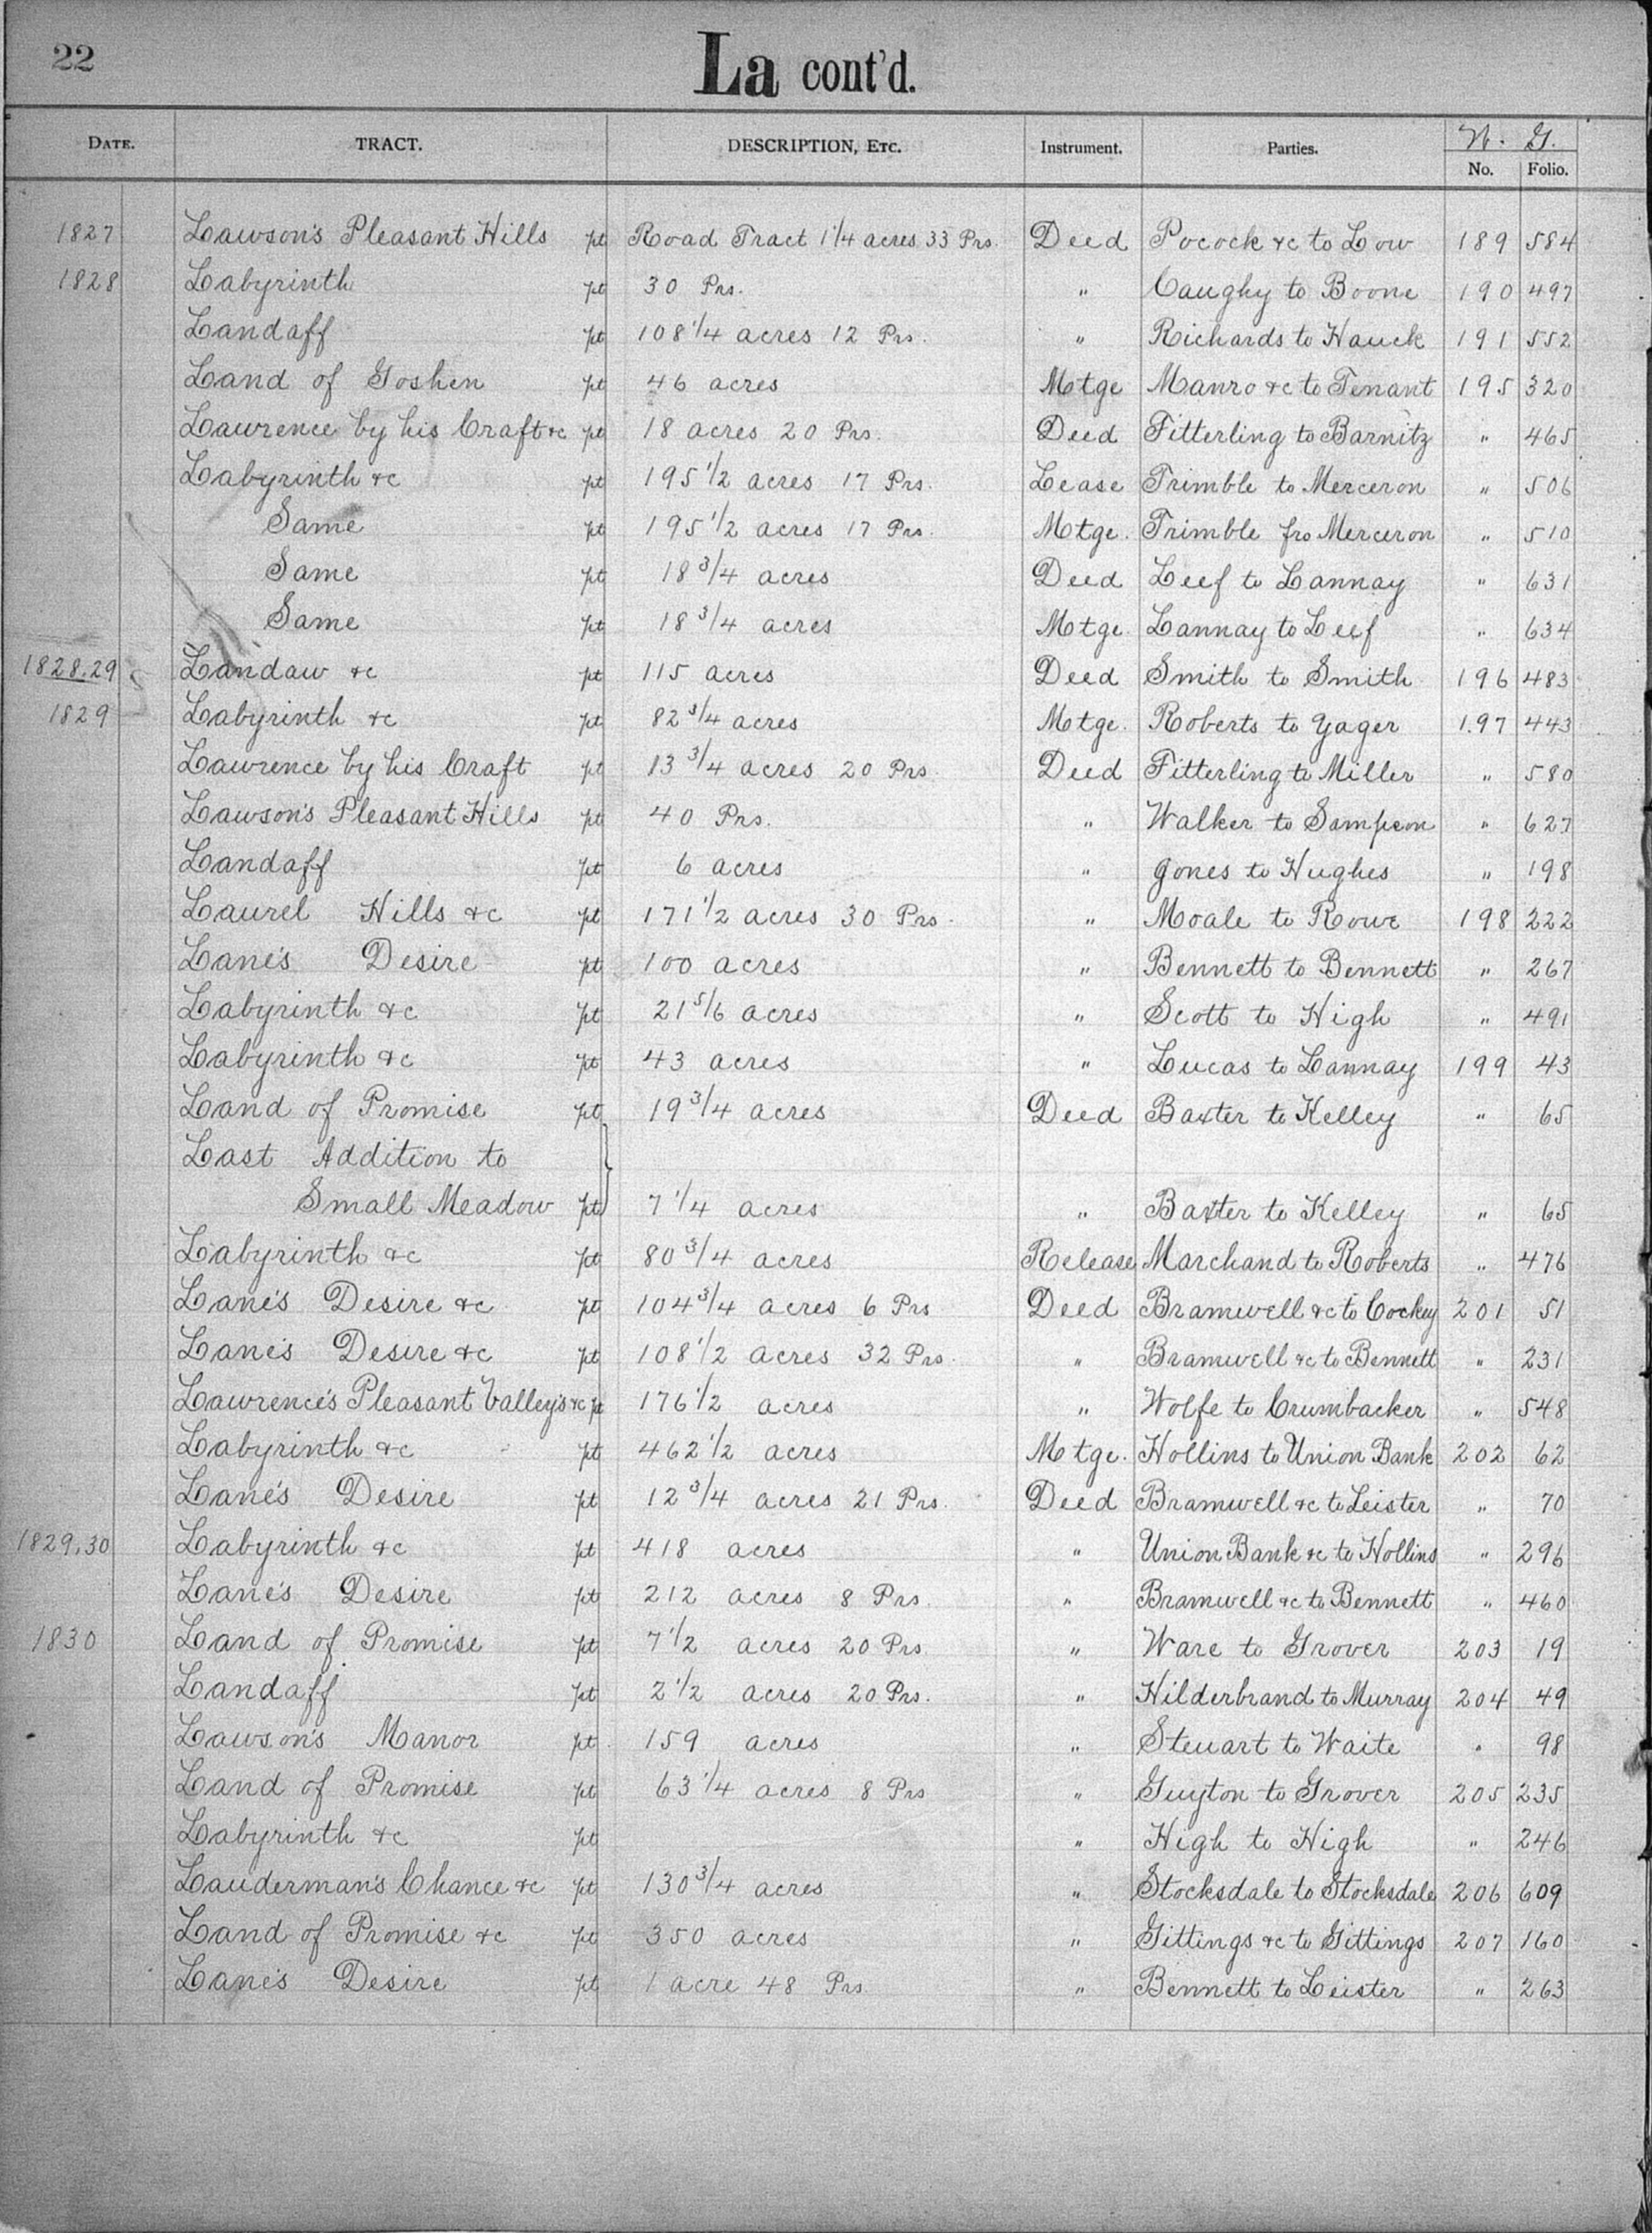 22
La cont'd.
DATE. TRACT. DESCRIPTION, ETC. Instrument. Parties. W. G. No. Folio.
1827 Lawson's Pleasant Hills pt Road Tract 1 1/4 acres 33 Prs. Deed Pocock &c to Low 189 584
1828 Labyrinth pt 30 Prs. " Caughy to Boone 190 497
Landaff pt 108 1/4 acres 12 Prs. " Richards to Hauck 191 552
Land of Goshen pt 46 acres Mtge Manro &c to Tenant 195 320
Lawrence by his Craft &c pt 18 acres 20 Prs. Deed Fitterling to Barnitz " 465
Labyrinth &c pt 195 1/2 acres 17 Prs. Lease Trimble to Merceron " 506
Same pt 195 1/2 acres 17 Prs. Mtge. Trimble fro Merceron " 510
Same pt 18 3/4 acres Deed Leef to Lannay " 631
Same pt 18 3/4 acres Mtge. Lannay to Leef " 634
1828.29 Landaw &c pt 115 acres Deed Smith to Smith 196 483
1829 Labyrinth &c pt 82 3/4 acres Mtge. Roberts to Yager 197 443
Lawrence by his Craft pt 13 3/4 acres 20 Prs. Deed Fitterling to Miller " 580
Lawson's Pleasant Hills pt 40 Prs. " Walker to Sampson " 627
Landaff pt 6 acres " Jones to Hughes " 198
Laurel Hills &c pt 171 1/2 acres 30 Prs. " Moale to Rowe 198 222
Lane's Desire pt 100 acres " Bennett to Bennett " 267
Labyrinth &c pt 21 5/6 acres " Scott to High " 491
Labyrinth &c pt 43 acres " Lucas to Lannay 199 43
Land of Promise pt 19 3/4 acres Deed Baxter to Kelley " 65
Last Addition to
Small Meadow pt } 7 1/4 acres " Baxter to Kelley " 65
Labyrinth &c pt 80 3/4 acres Release Marchand to Roberts " 476
Lane's Desire &c pt 104 3/4 acres 6 Prs Deed Bramwell &c to Cockey 201 51
Lane's Desire &c pt 108 1/2 acres 32 Prs. " Bramwell &c to Bennett " 231
Lawrence's Pleasant Valley's &c pt 176 1/2 acres " Wolfe to Crumbacker " 548
Labyrinth &c pt 462 1/2 acres Mtge. Hollins to Union Bank 202 62
Lane's Desire pt 12 3/4 acres 21 Prs. Deed Bramwell &c to Leister " 70
1829.30 Labyrinth &c pt 418 acres " Union Bank &c to Hollins " 296
Lane's Desire pt 212 acres 8 Prs. " Bramwell &c to Bennett " 460
1830 Land of Promise pt 7 1/2 acres 20 Prs. " Ware to Grover 203 19
Landaff pt 2 1/2 acres 20 Prs. " Hilderbrand to Murray 204 49
Lawson's Manor pt 159 acres " Steuart to Waite " 98
Land of Promise pt 63 1/4 acres 8 Prs " Guyton to Grover 205 235
Labyrinth &c pt " High to High " 246
Lauderman's Chance &c pt 130 3/4 acres " Stocksdale to Stocksdale 206 609
Land of Promise &c pt 350 acres " Gittings &c to Gittings 207 160
Lane's Desire pt 1 acre 48 Prs. " Bennett to Leister " 263